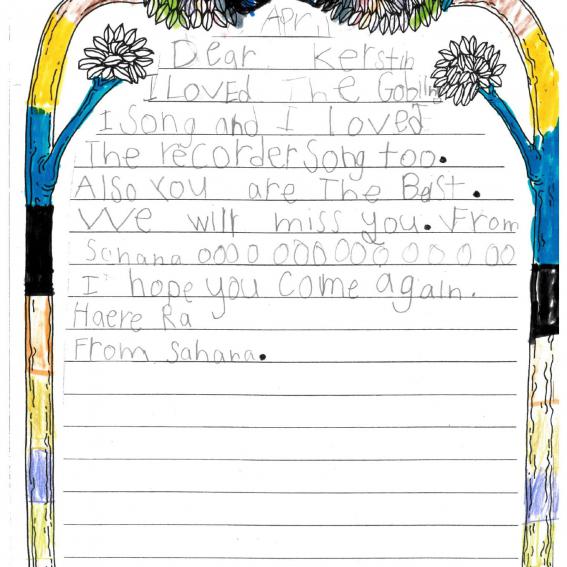 April
Dear Kerstin
I LOVEd The Goblin
I Song and I loved
The recorder Song too.
Also you are The Best.
We will miss you. From
Sahana oooo oooooo o o o oo
I hope you come again.
Haere Ra
From Sahana.